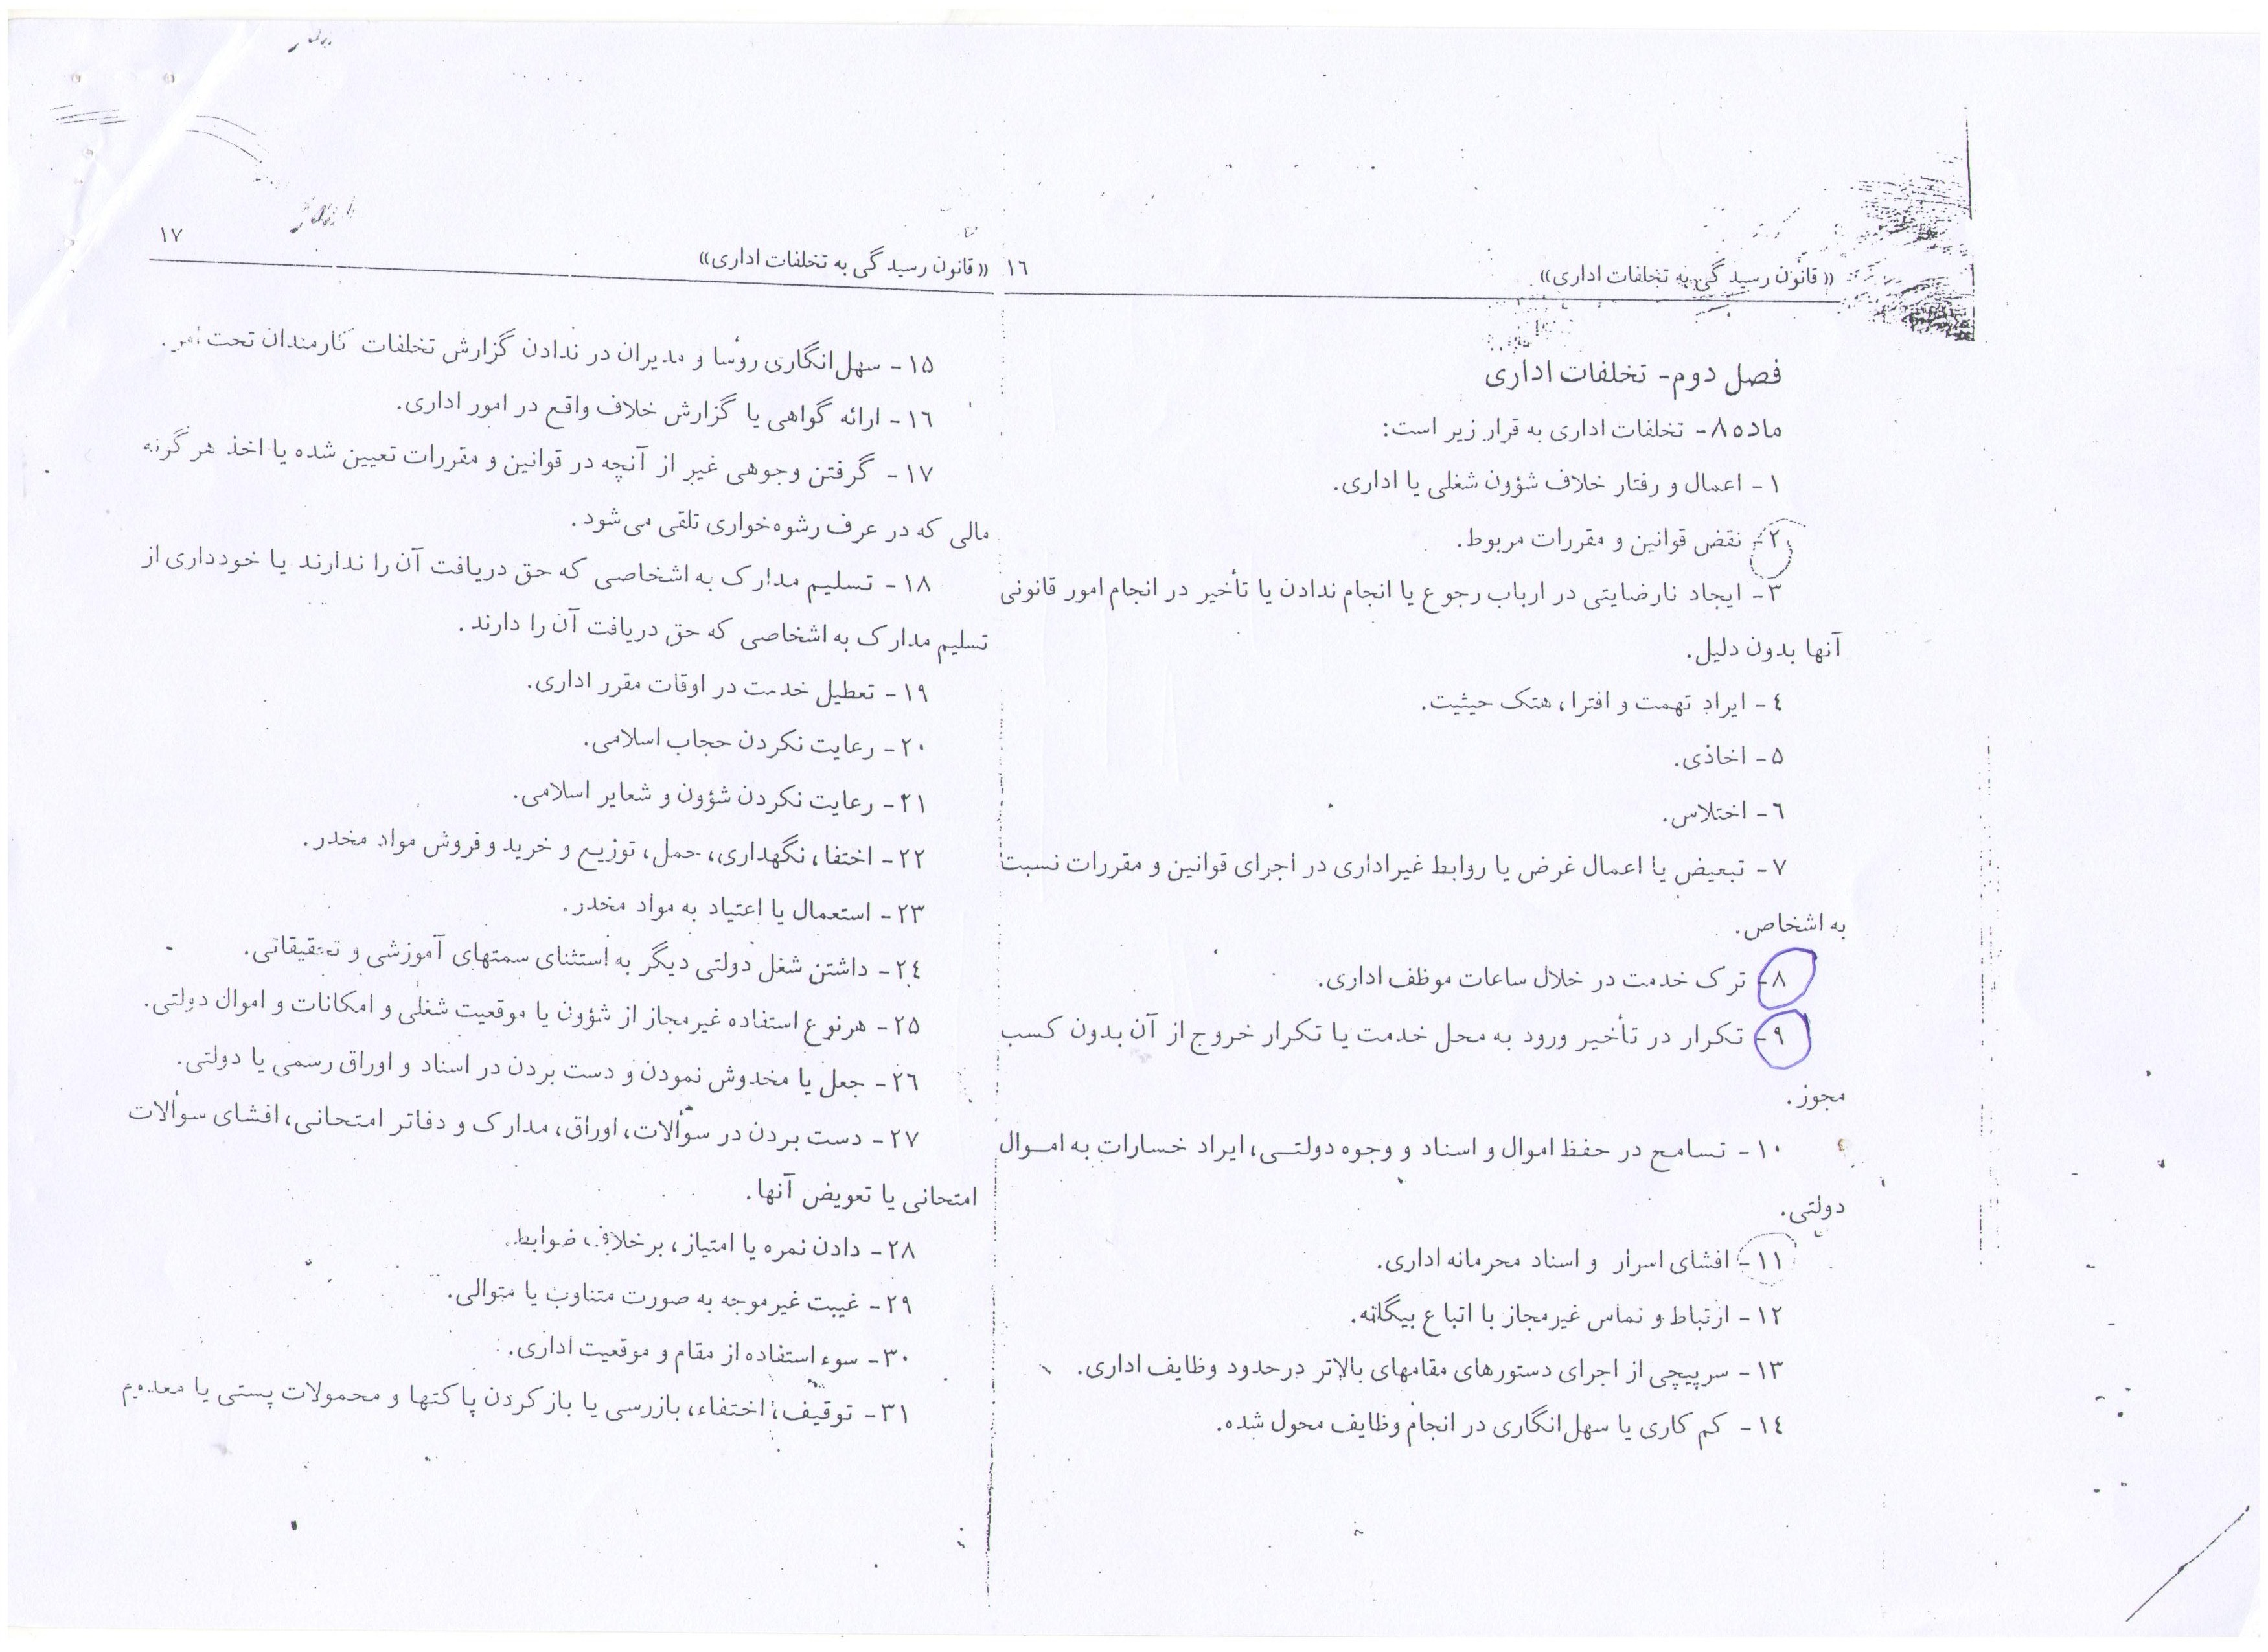 «قانون رسیدگی به تخلفات اداری»
۱۶
فصل دوم- تخلفات اداری
ماده ۸- تخلفات اداری به قرار زیر است:
۱- اعمال و رفتار خلاف شؤون شغلی یا اداری.
۲- نقض قوانین و مقررات مربوط.
۳- ایجاد نارضایتی در ارباب رجوع یا انجام ندادن یا تأخیر در انجام امور قانونی
آنها بدون دلیل.
۴- ایراد تهمت و افترا، هتک حیثیت.
۵- اخاذی.
۶- اختلاس.
۷- تبعیض یا اعمال غرض یا روابط غیراداری در اجرای قوانین و مقررات نسبت
به اشخاص.
۸- ترک خدمت در خلال ساعات موظف اداری.
۹- تکرار در تأخیر ورود به محل خدمت یا تکرار خروج از آن بدون کسب
مجوز.
۱۰- تسامح در حفظ اموال و اسناد و وجوه دولتی، ایراد خسارات به اموال
دولتی.
۱۱- افشای اسرار و اسناد محرمانه اداری.
۱۲- ارتباط و تماس غیرمجاز با اتباع بیگانه.
۱۳- سرپیچی از اجرای دستورهای مقامهای بالاتر درحدود وظایف اداری.
۱۴- کم کاری یا سهل‌انگاری در انجام وظایف محول شده.
«قانون رسیدگی به تخلفات اداری»
۱۷
۱۵- سهل‌انگاری رؤسا و مدیران در ندادن گزارش تخلفات کارمندان تحت امر.
۱۶- ارائه گواهی یا گزارش خلاف واقع در امور اداری.
۱۷- گرفتن وجوهی غیر از آنچه در قوانین و مقررات تعیین شده یا اخذ هر گونه
مالی که در عرف رشوه‌خواری تلقی می‌شود.
۱۸- تسلیم مدارک به اشخاصی که حق دریافت آن را ندارند یا خودداری از
تسلیم مدارک به اشخاصی که حق دریافت آن را دارند.
۱۹- تعطیل خدمت در اوقات مقرر اداری.
۲۰- رعایت نکردن حجاب اسلامی.
۲۱- رعایت نکردن شؤون و شعایر اسلامی.
۲۲- اختفا، نگهداری، حمل، توزیع و خرید و فروش مواد مخدر.
۲۳- استعمال یا اعتیاد به مواد مخدر.
۲۴- داشتن شغل دولتی دیگر به استثنای سمتهای آموزشی و تحقیقاتی.
۲۵- هرنوع استفاده غیرمجاز از شؤون یا موقعیت شغلی و امکانات و اموال دولتی.
۲۶- جعل یا مخدوش نمودن و دست بردن در اسناد و اوراق رسمی یا دولتی.
۲۷- دست بردن در سوألات، اوراق، مدارک و دفاتر امتحانی، افشای سوألات
امتحانی یا تعویض آنها.
۲۸- دادن نمره یا امتیاز، برخلاف ضوابط.
۲۹- غیبت غیرموجه به صورت متناوب یا متوالی.
۳۰- سوء استفاده از مقام و موقعیت اداری.
۳۱- توقیف، اختفاء، بازرسی یا باز کردن پاکتها و محمولات پستی یا معدوم